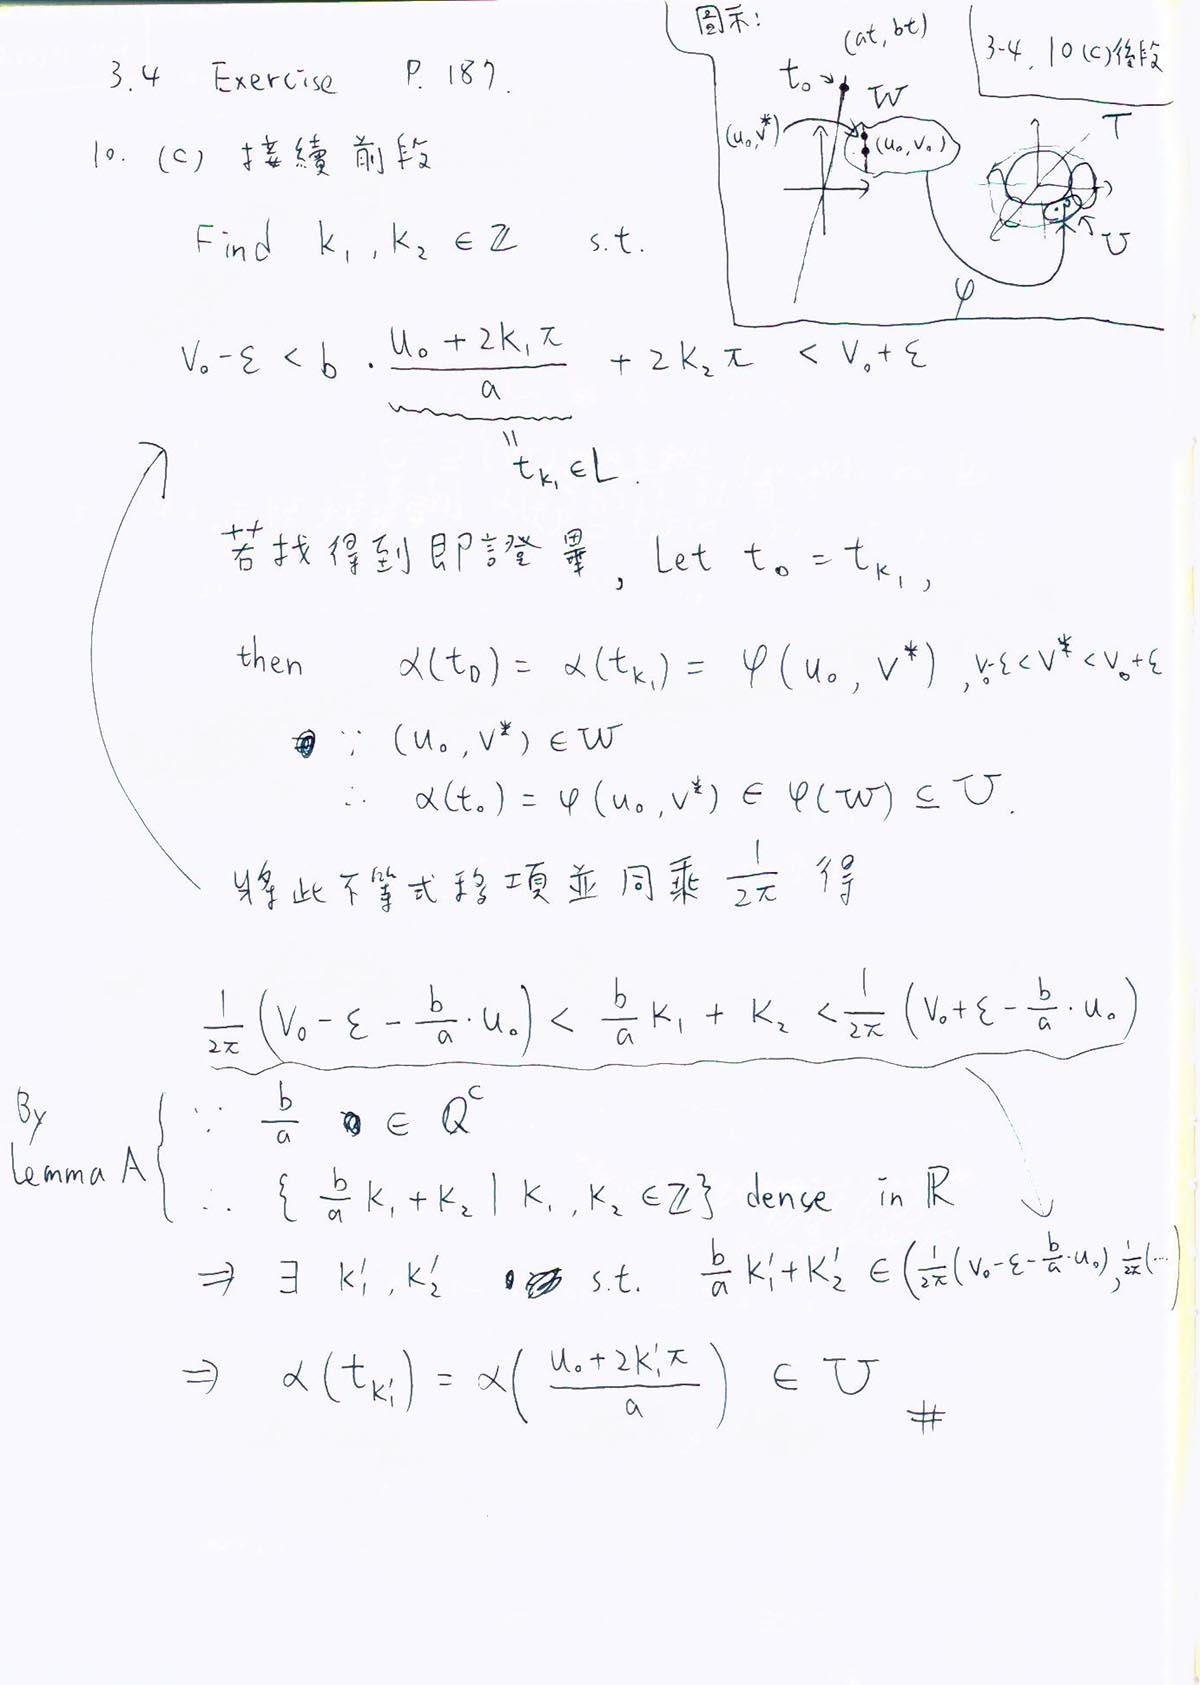 圖示:
(at, bt)
3-4. 10(c)後段
t₀
W
(u₀, v*)
(u₀, v₀)
T
U
φ
3.4 Exercise P. 187.
10. (c) 接續前段
Find k₁, k₂ ∈ ℤ s.t.
v₀-ε < b · (u₀ + 2k₁π)/a + 2k₂π < v₀+ε
= t_{k₁} ∈ L.
若找得到即證畢, Let t₀ = t_{k₁},
then α(t₀) = α(t_{k₁}) = φ(u₀, v*), v₀-ε < v* < v₀+ε
∵ (u₀, v*) ∈ W
∴ α(t₀) = φ(u₀, v*) ∈ φ(W) ⊆ U.
將此不等式移項並同乘 1/2π 得
1/2π (v₀ - ε - b/a · u₀) < b/a k₁ + k₂ < 1/2π (v₀ + ε - b/a · u₀)
By
Lemma A
∵ b/a ∈ Qᶜ
∴ { b/a k₁ + k₂ | k₁, k₂ ∈ ℤ} dense in ℝ
⇒ ∃ k₁', k₂' s.t. b/a k₁' + k₂' ∈ (1/2π (v₀ - ε - b/a · u₀), 1/2π (...)
⇒ α(t_{k₁'}) = α( (u₀ + 2k₁'π)/a ) ∈ U
#